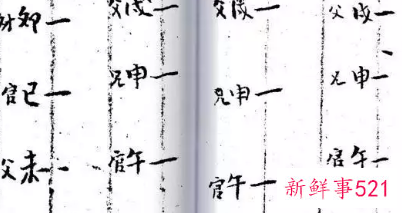 父戌一
兄申一
官午一
父戌一
兄申一
官午一
父戌一
兄申一
官午一
财卯一
官巳一
父未一
新鲜事521